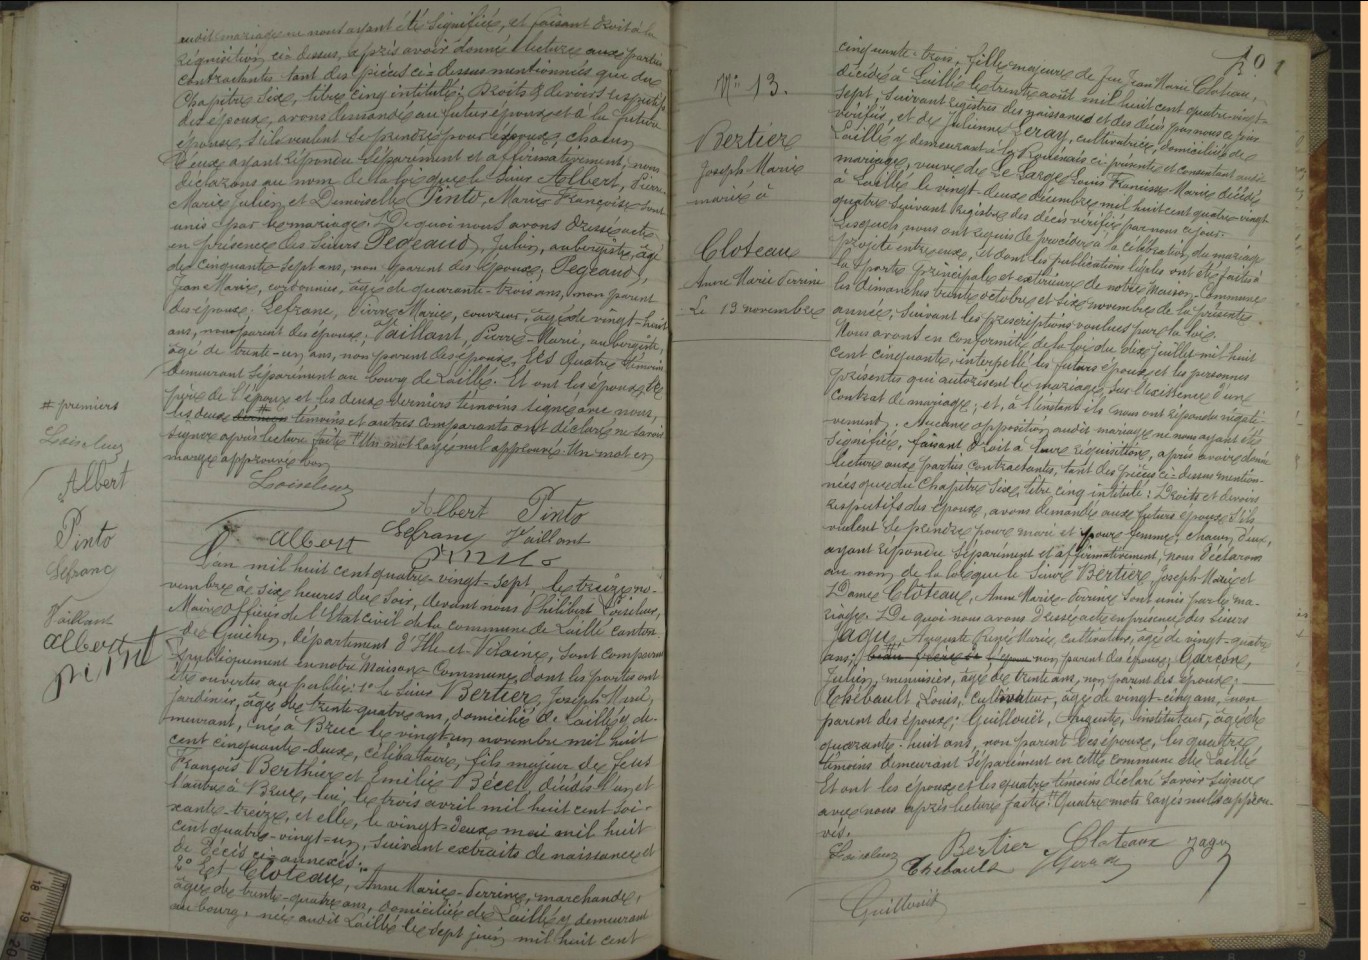 audit mariage ne nous ayant été signifiée, et faisant droit à la
réquisition ci-dessus, après avoir donné lecture aux parties
contractantes tant des pièces ci-dessus mentionnées que du
Chapitre Six, titre cinq intitulé: Droits & devoirs respectifs
des époux, avons demandé au futur époux et à la future
épouse, s'ils veulent se prendre pour époux, chacun
Deux ayant répondu séparément et affirmativement, nous
déclarons au nom de la loi que le Sieur Albert, Pierre
Marie Julien, et Demoiselle Pinto, Marie Françoise sont
unis par le mariage. De quoi nous avons dressé acte
en présence des Sieurs Pegeaud, Julien, aubergiste, âgé
de cinquante-sept ans, non parent des époux; Pegeaud,
Jean Marie, cordonnier, âgé de quarante-trois ans, non parent
des époux; Lefranc, Pierre Marie, couvreur, âgé de vingt-huit
ans, non parent des époux; Vaillant, Pierre-Marie, aubergiste,
âgé de trente-un ans, non parent des époux, les quatre témoins
demeurant séparément au bourg de Laillé. Et ont les époux, le
père de l'époux et les deux derniers témoins signé avec nous,
les deux derniers # témoins et autres comparants ont déclaré ne savoir
signer après lecture faite. # Un mot rayé nul approuvé. Un mot en
marge approuvé bon
# premiers
Loiseleux
Albert
Pinto
Lefranc
Vaillant
Albert
Pinto
Loiseleux
Albert Pinto
Albert Lefranc Vaillant
Pinto
L'an mil huit cent quatre-vingt-sept, le treize no-
vembre à six heures du Soir, devant nous Philibert Loiseleux,
Maire officier de l'Etat civil de la commune de Laillé canton
de Guichen, département d'Ille-et-Vilaine, sont comparus
publiquement en notre Maison-Commune, dont les portes ont
été ouvertes au public: 1° Le Sieur Bertier, Joseph-Marie,
jardinier, âgé de trente quatre ans, domicilié de Laillé y de-
meurant, né à Bruc le vingt-un novembre mil huit
cent cinquante-deux, célibataire, fils majeur de feus
François Berthier et Emilie Bécel, décédés l'un et
l'autre à Bruc, lui, le trois avril mil huit cent soi-
xante-treize, et elle, le vingt-deux mai mil huit
cent quatre-vingt-un, suivant extraits de naissance et
de décès ci-annexés.
2° Et Cloteau, Anne Marie-Perrine, marchande,
âgée de trente-quatre ans, domiciliée de Laillé y demeurant
au bourg, née audit Laillé le sept juin mil huit cent
101
N° 13.
Bertier
Joseph Marie
marié à
Cloteau
Anne Marie Perrine
Le 13 novembre
cinquante-trois, fille majeure de feu Jean Marie Cloteau,
décédé à Laillé le trente août mil huit cent quatre-vingt-
sept, suivant registres des naissances et des décès par nous ce jour
vérifiés, et de Julienne Leray, cultivatrice, domiciliée de
Laillé y demeurant à la ci présente et consentant audit
mariage, veuve de Le Large Louis François Marie décédé
à Laillé le vingt-deux décembre mil huit cent quatre-vingt
quatre suivant Registre des décès vérifié par nous ce jour.
Lesquels nous ont requis de procéder à la célébration du mariage
projeté entre eux, et dont les publications légales ont été faites à
la porte principale et extérieure de notre Maison-Commune
les dimanches trente octobre et six novembre de la présente
année, suivant les prescriptions voulues par la loi.
Nous avons en conformité de la loi du dix juillet mil huit
cent cinquante, interpellé les futurs époux et les personnes
présentes qui autorisent le mariage, sur l'existence d'un
contrat de mariage; et, à l'instant ils nous ont répondu négati-
vement. Aucune opposition audit mariage ne nous ayant été
signifiée, faisant droit à leur réquisition, après avoir donné
lecture aux parties contractantes, tant des pièces ci-dessus mention-
nées que du Chapitre Six, titre cinq intitulé: Droits et devoirs
respectifs des époux, avons demandé aux futurs époux s'ils
veulent se prendre pour mari et pour femme; chacun d'eux,
ayant répondu séparément et affirmativement, nous déclarons
au nom de la loi que le Sieur Bertier, Joseph-Marie et
Dame Cloteau, Anne Marie-Perrine sont unis par le ma-
riage. De quoi nous avons dressé acte en présence des Sieurs
Jagu, Auguste René Marie, cultivateur, âgé de vingt-quatre
ans; beau frère de l'époux non parent des époux; Garçon,
Julien, menuisier, âgé de trente ans, non parent des époux;
Thébault, Louis, cultivateur, âgé de vingt-cinq ans, non
parent des époux; Guillouët, Auguste, instituteur, âgé de
quarante-huit ans, non parent des époux, les quatre
témoins demeurant séparément en cette commune de Laillé
Et ont les époux et les quatre témoins déclaré savoir signer
avec nous après lecture faite. # Quatre mots rayés nuls approu-
vés.
Loiseleux Bertier Cloteaux Jagu
Thebault
Guillouët